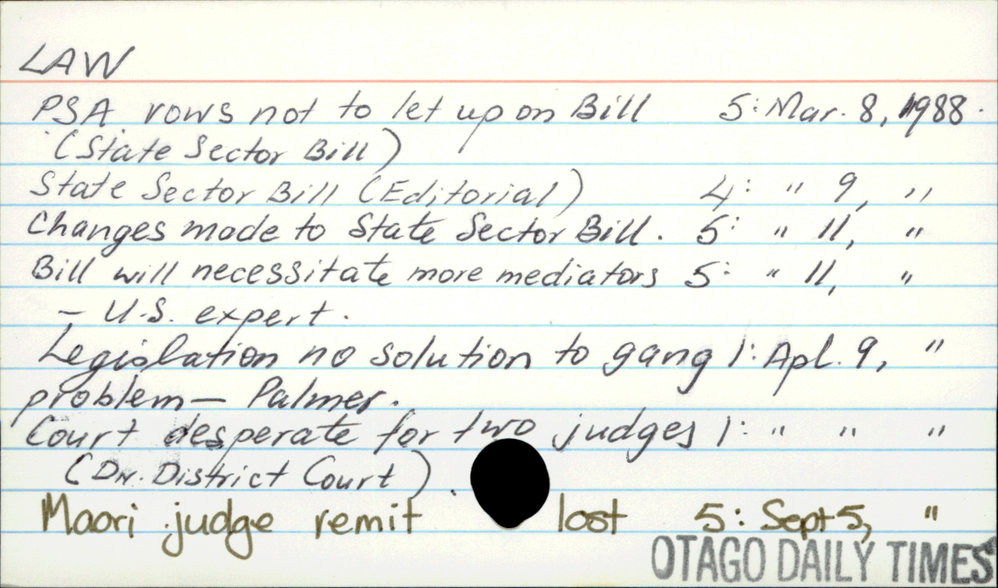 LAW
PSA vows not to let up on Bill 5: Mar. 8, 1988.
(State Sector Bill)
State Sector Bill (Editorial) 4: " 9, "
Changes made to State Sector Bill. 5: " 11, "
Bill will necessitate more mediators 5: " 11, "
- U.S. expert.
Legislation no solution to gang 1: Apl. 9, "
problem - Palmer.
Court desperate for two judges 1: " " "
(Dn. District Court).
Maori judge remit lost 5: Sept 5, "
OTAGO DAILY TIMES